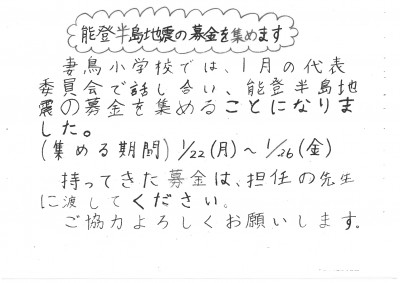 能登半島地震の募金を集めます
妻鳥小学校では、1月の代表
委員会で話し合い、能登半島地
震の募金を集めることになりま
した。
(集める期間) 1/22(月)～1/26(金)
持ってきた募金は、担任の先生
に渡してください。
ご協力よろしくお願いします。